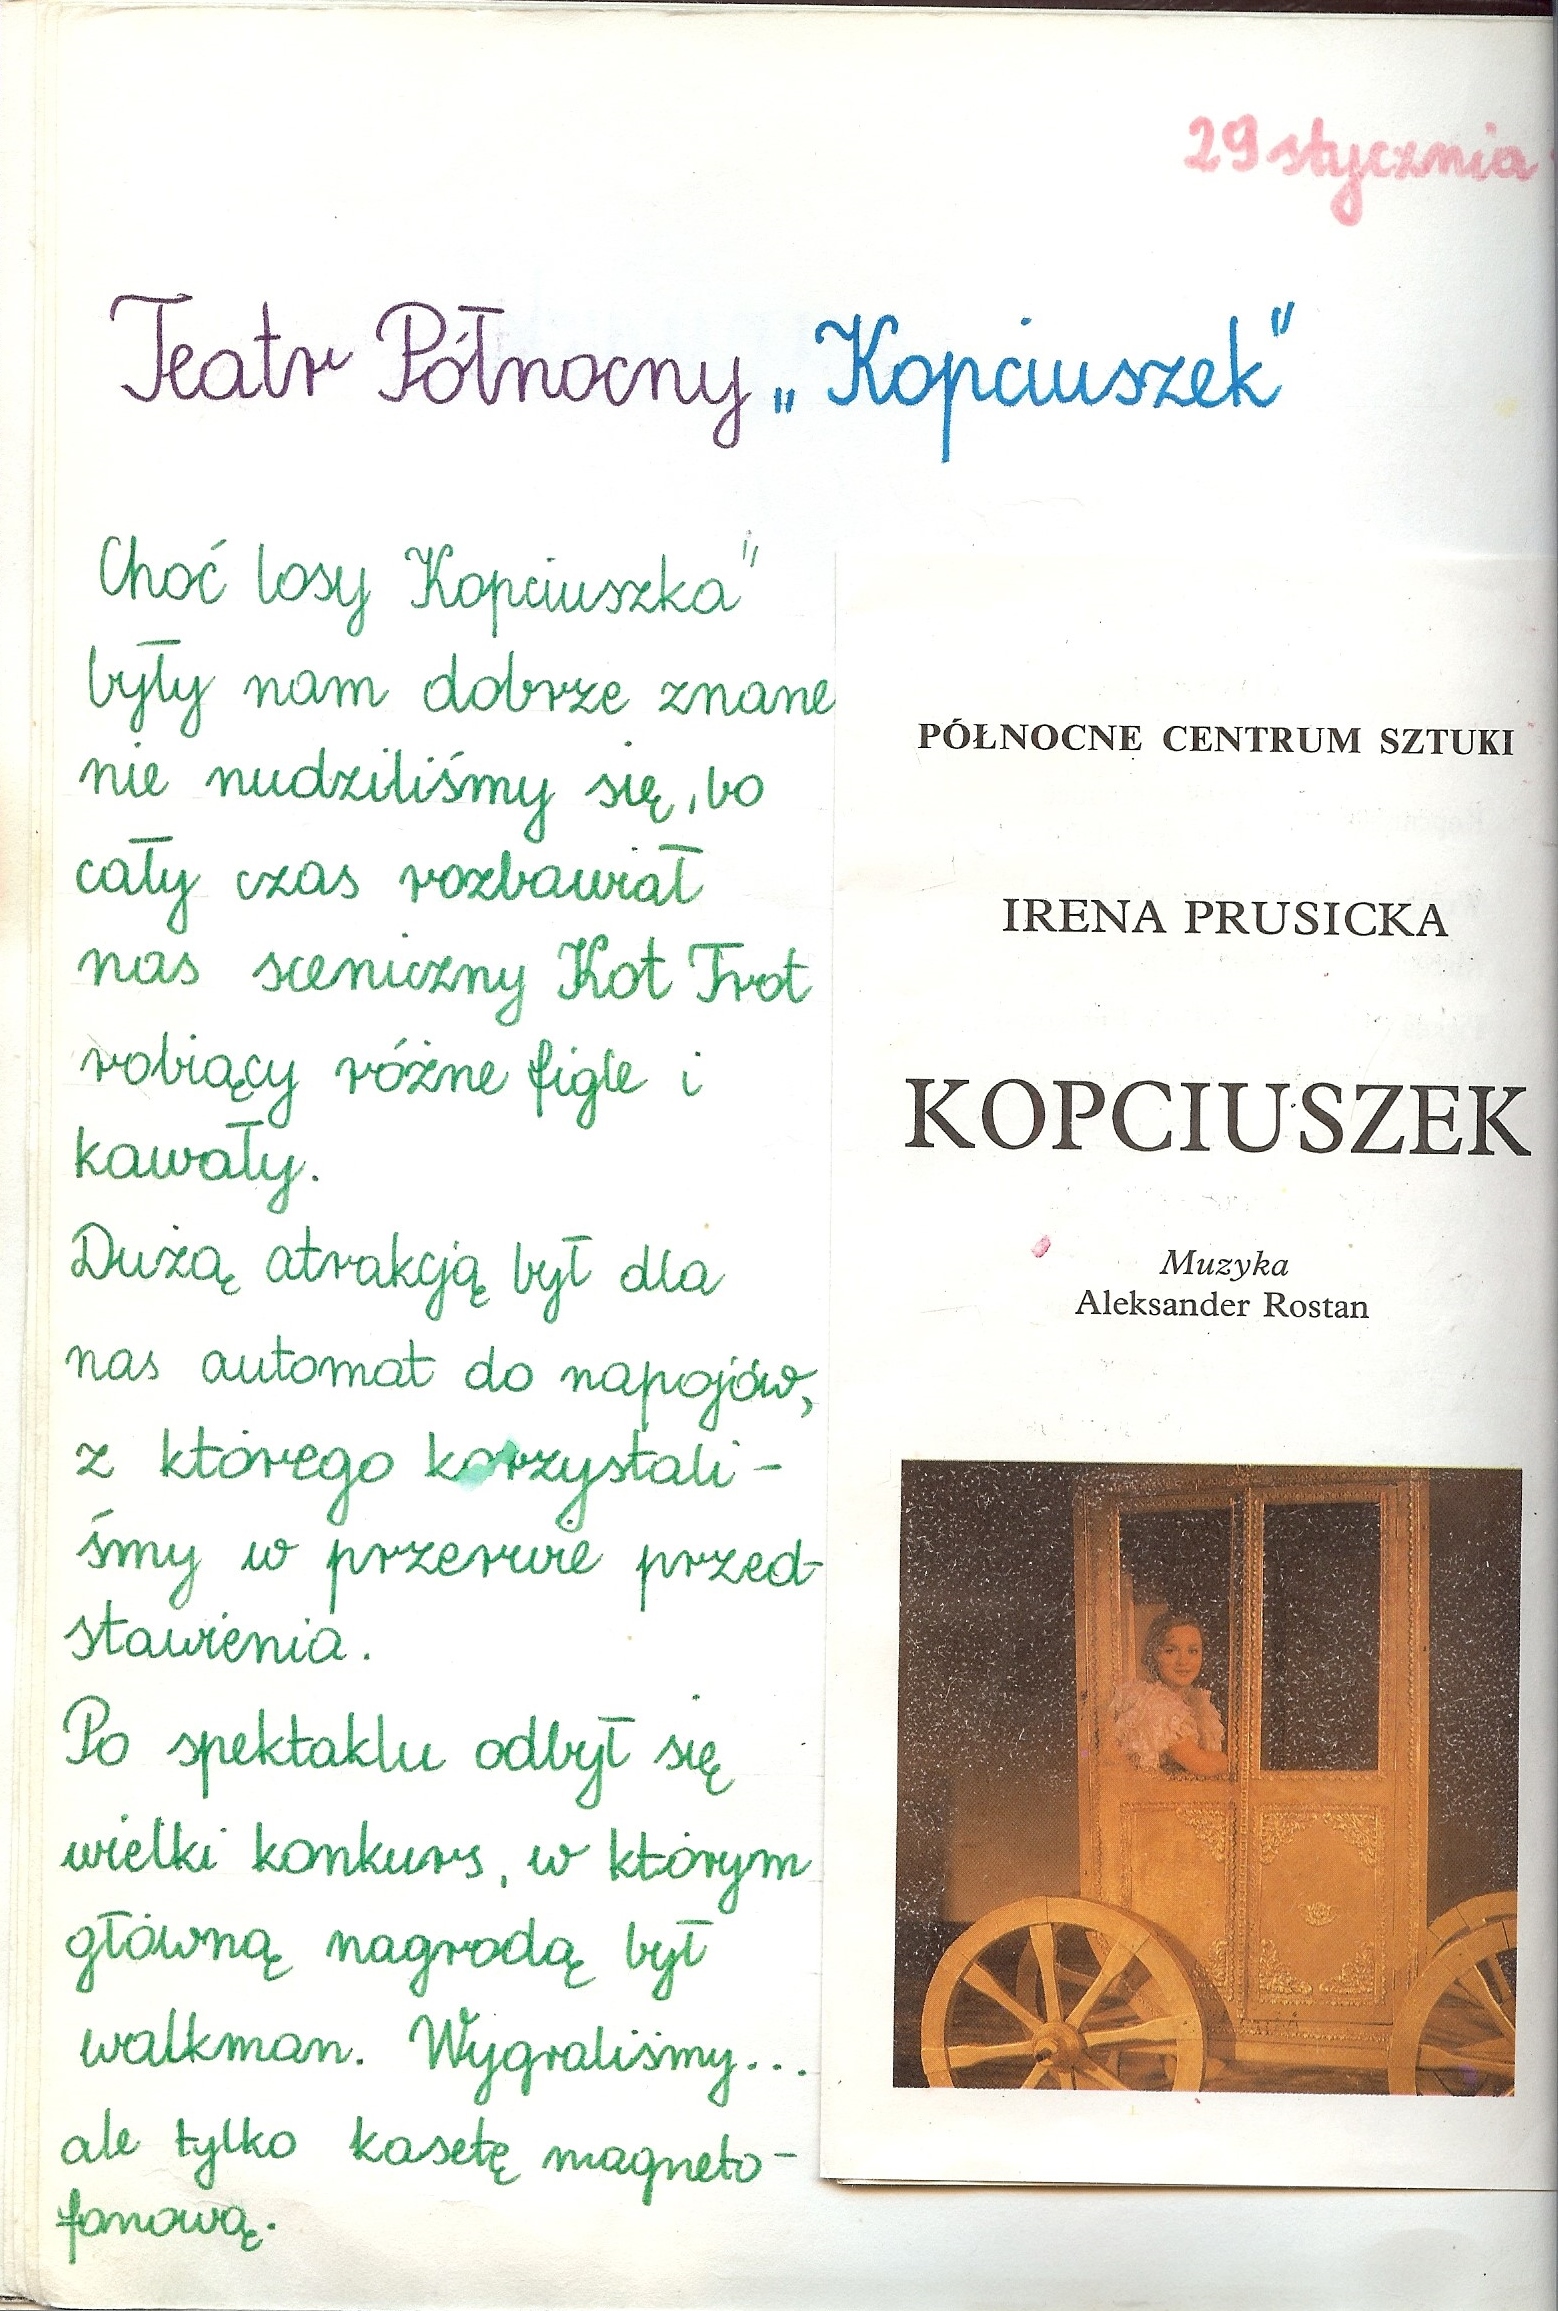 29 stycznia
Teatr Północny „Kopciuszek"
Choć losy Kopciuszka"
były nam dobrze znane
nie nudziliśmy się, bo
cały czas rozbawiał
nas sceniczny Kot Trot
robiący różne figle i
kawały.
Dużą atrakcją był dla
nas automat do napojów,
z którego korzystali-
śmy w przerwie przed-
stawienia.
Po spektaklu odbył się
wielki konkurs, w którym
główną nagrodą był
walkman. Wygraliśmy...
ale tylko kasetę magneto-
fonową.
PÓŁNOCNE CENTRUM SZTUKI
IRENA PRUSICKA
KOPCIUSZEK
Muzyka
Aleksander Rostan